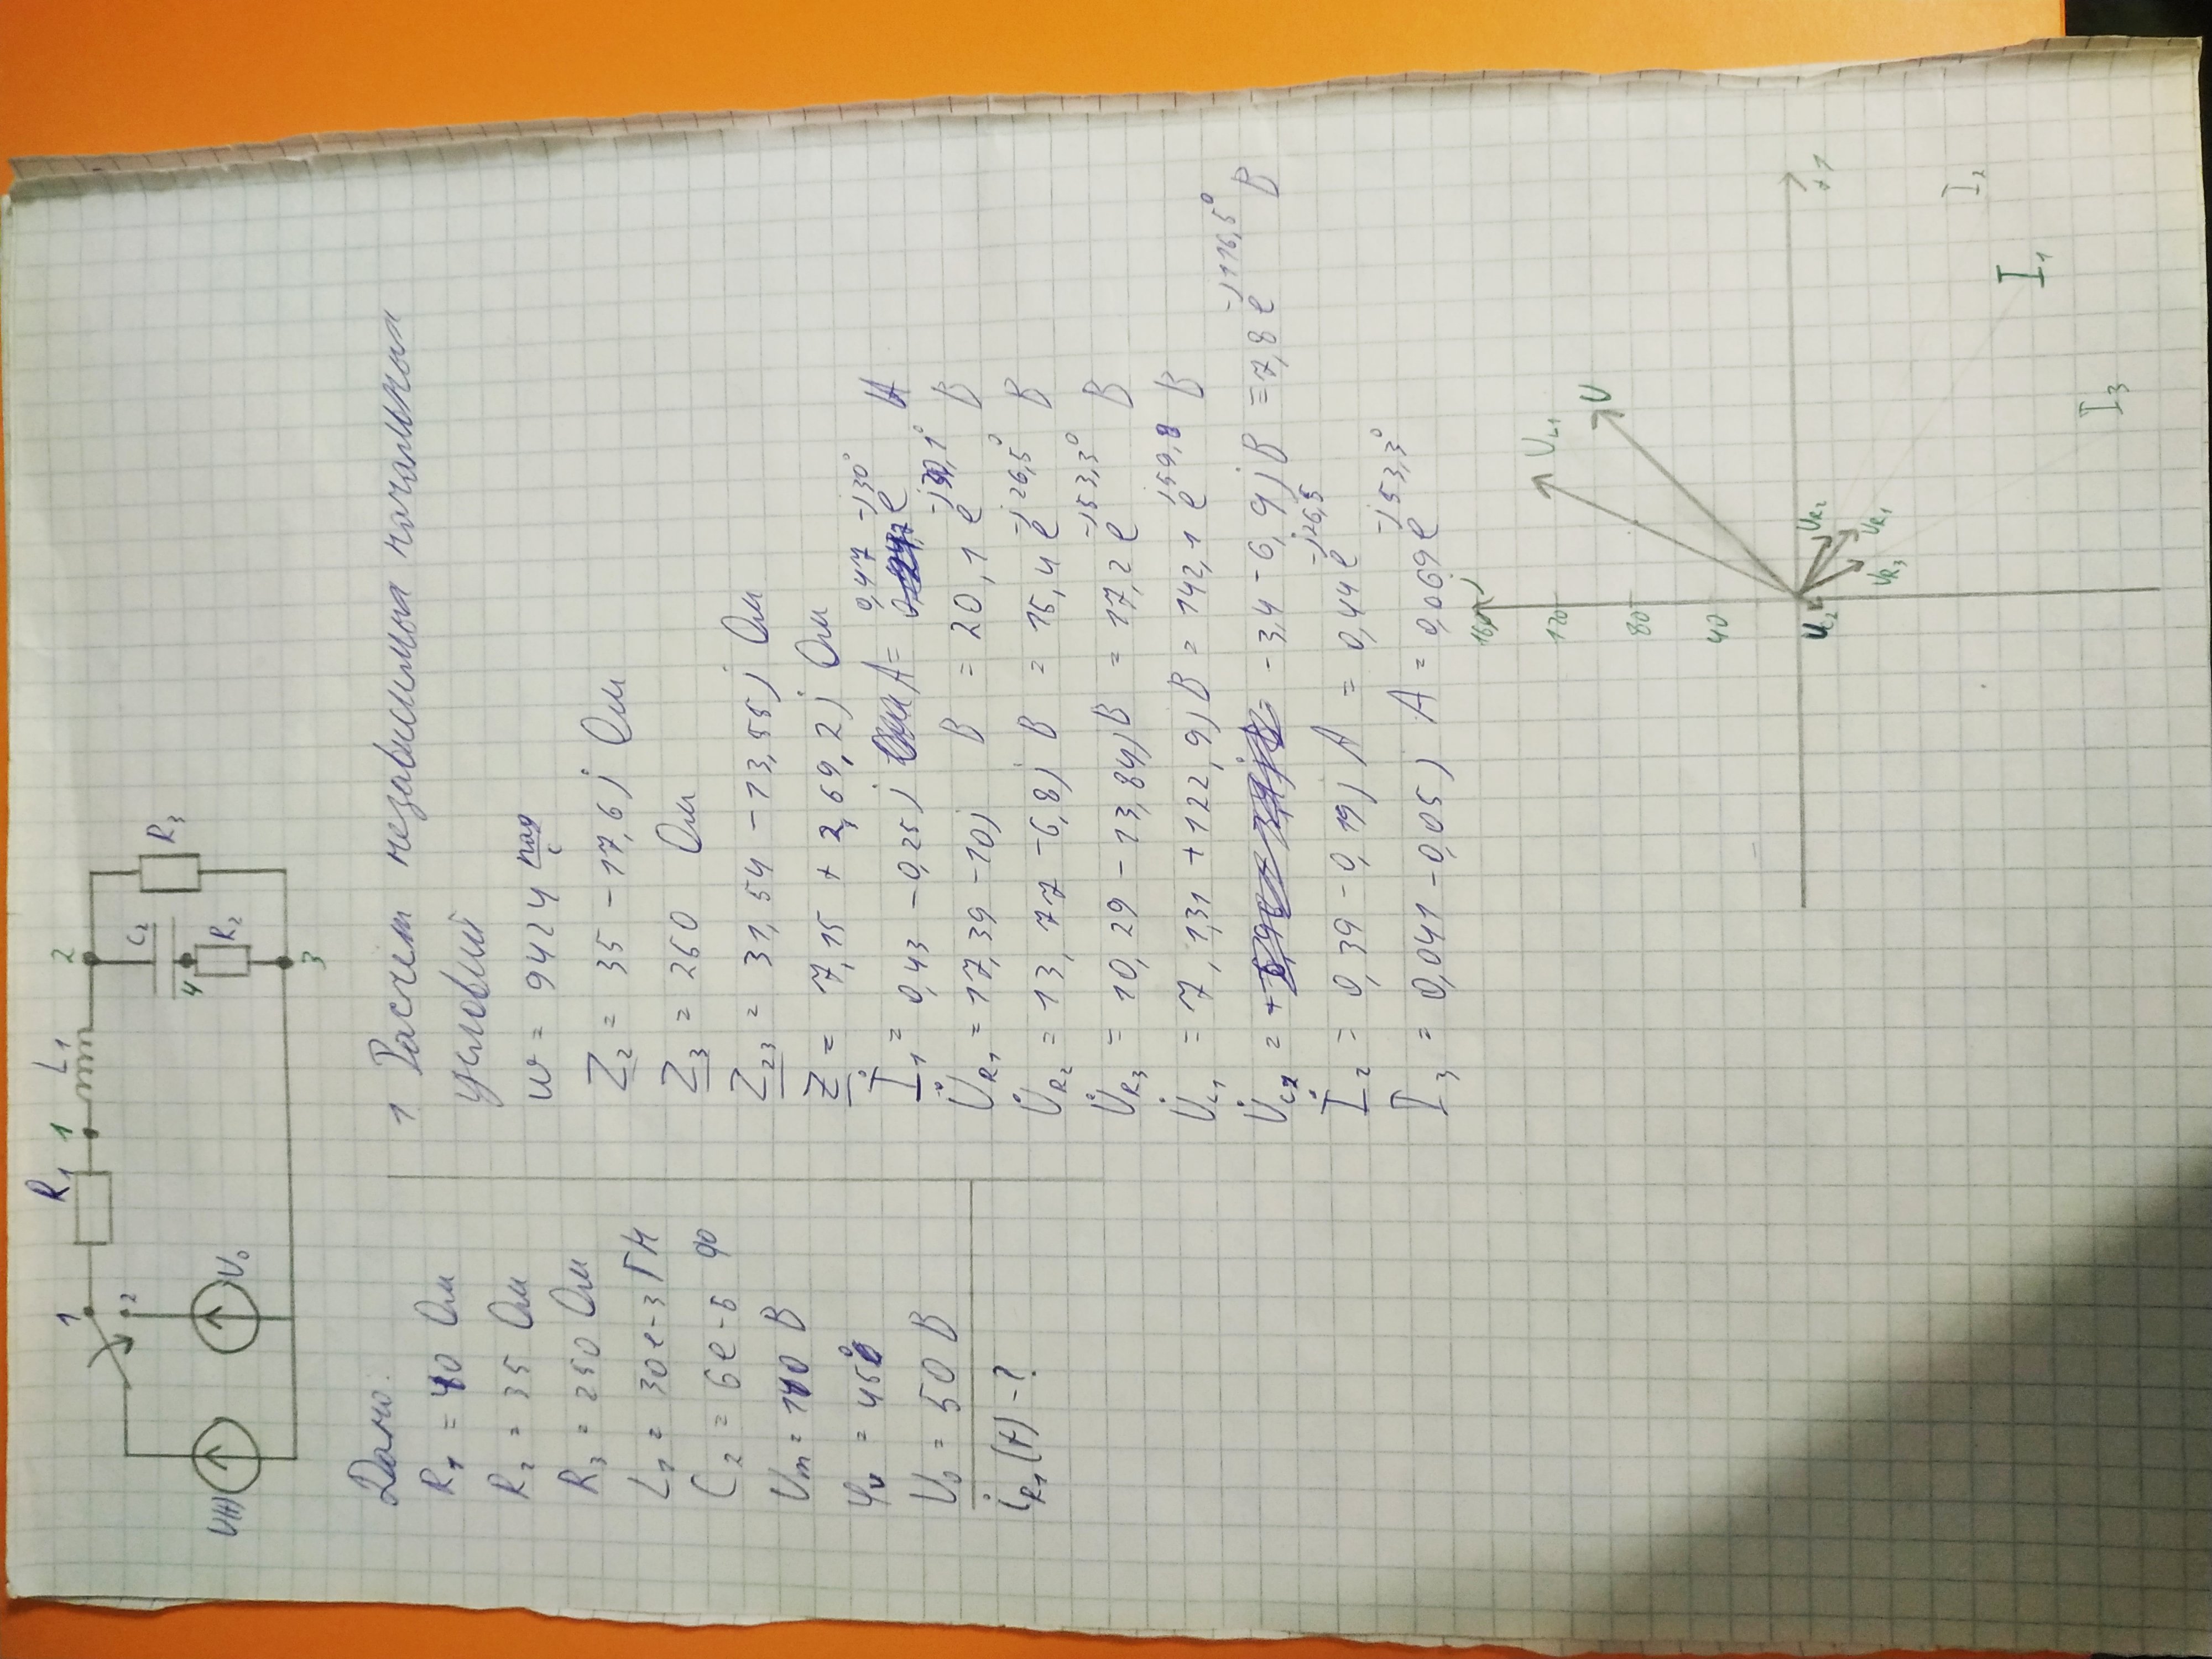 1 R₁ 1 L₁ 2
2
C₂
4
R₂
R₃
U(t)
U₀
3
Дано:
R₁ = 40 Ом
R₂ = 35 Ом
R₃ = 250 Ом
L₁ = 30e-3 Гн
C₂ = 6e-6 Ф
Um = 140 В
φᵤ = 45°
U₀ = 50 В
i_R₁(t) - ?
1 Расчет независимых начальных
условий
w = 9424 рад/с
Z₂ = 35 - 17,6j Ом
Z₃ = 260 Ом
Z₂₃ = 31,54 - 13,55j Ом
Z = 7,15 + 2,69,2j Ом
İ₁ = 0,43 - 0,25j A = 0,47 e^-j30° A
U̇_R₁ = 17,39 - 10j В = 20,1 e^-j30,1° В
U̇_R₂ = 13,77 - 6,8j В = 15,4 e^-j26,5° В
U̇_R₃ = 10,29 - 13,84j В = 17,2 e^-j53,3° В
U̇_L₁ = 7,131 + 122,9j В = 142,1 e^j59,8 В
U̇_C₂ = -3,4 - 6,9j В = 7,8 e^-j116,5° В
İ₂ = 0,39 - 0,19j A = 0,44 e^-j26,5
I₃ = 0,041 - 0,05j A = 0,069 e^-j53,3°
160 j
120 U_L₁
U
80
40
+1
U_C₂ U_R₂
U_R₃ U_R₁
I₂
I₁
I₃